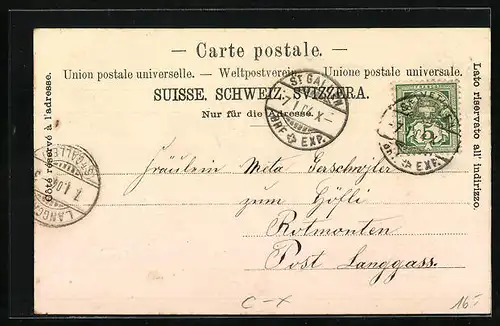 — Carte postale. —
Union postale universelle. — Weltpostverein — Unione postale universale.
SUISSE. SCHWEIZ. SVIZZERA.
Nur für die Adresse.
Côté réservé à l'adresse.
Lato riservato all' indirizzo.
ST GALLEN
7.I.04.X—
BRF. EXP.
5
EXP.
LANGG
ST. GALLEN
Fräulein Meta
zum Höfli
Rotmonten
Post Langgass.
C-X
16.-